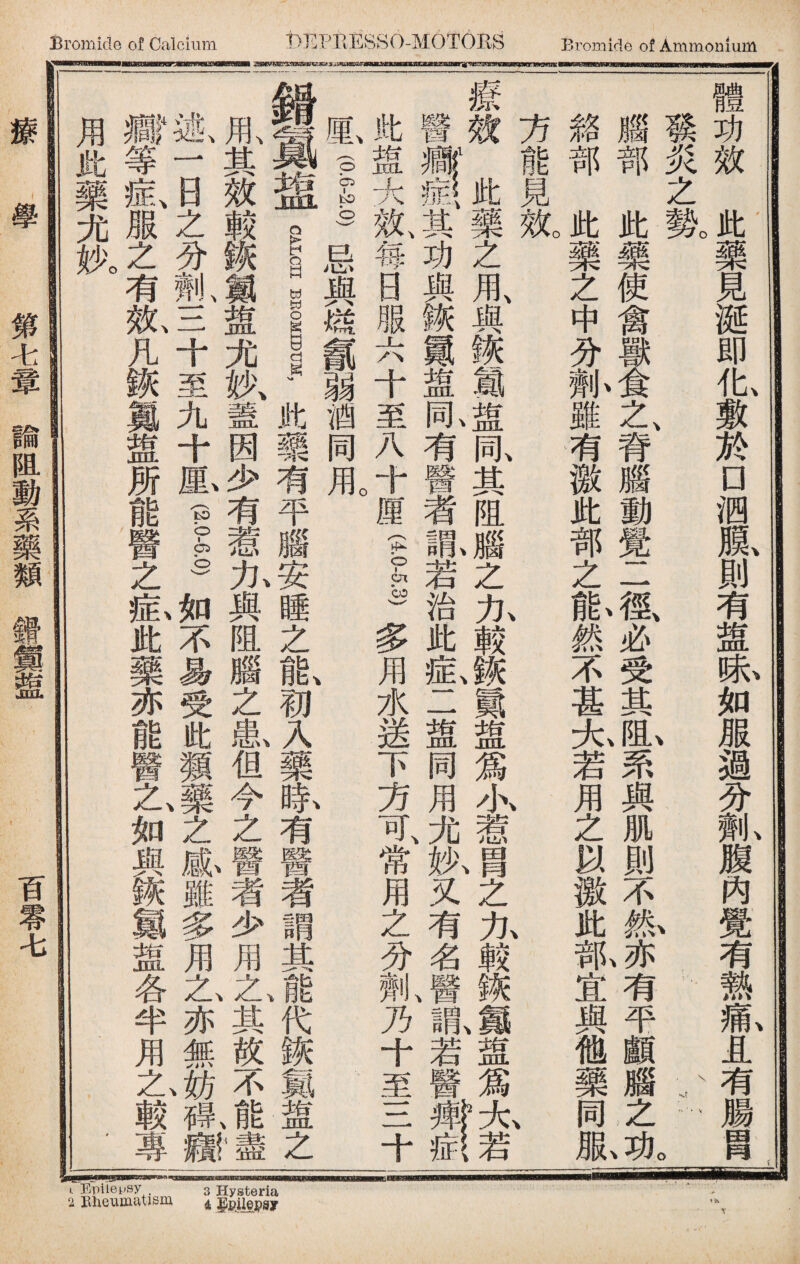 Bromide of Calcium DEPRESSO-MOTORS Bromide of Ammonium
體功效 此藥見涎即化、敷於口泗膜、則有塩味、如服過分劑、腹內覺有熱痛、且有腸胃
發炎之勢。
腦部 此藥使禽獸食之、脊腦動覺二徑、必受其阻、系與肌則不然、亦有平顱腦之功。
絡部 此藥之中分劑、雖有激此部之能、然不甚大、若用之以激此部、宜與他藥同服、
方能見效。
療效 此藥之用、與鉃䤉塩同、其阻腦之力、較鉃䤉塩爲小、惹胃之力、較鉃䤉塩爲大、若
醫癇¹症、其功與鉃䤉塩同、有醫者謂、若治此症、二塩同用尤妙、又有名醫謂、若醫痺²症
此塩大效、每日服六十至八十厘 (4.0-5.3) 多用水送下方可、常用之分劑、乃十至三十
厘、(0.6-2.0) 忌與㷱氤弱酒同用。
鎉䤉塩 CALCII BROMIDUM, 此藥有平腦安睡之能、初入藥時、有醫者謂其能代鉃䤉塩之
用、其效較鉃䤉塩尤妙、蓋因少有惹力、與阻腦之患、但今之醫者少用之、其故不能盡
述、一日之分劑、三十至九十厘、(2.0-6.0) 如不易受此類藥之感、雖多用之、亦無妨碍、癪³
癇⁴等症、服之有效、凡鉃䤉塩所能醫之症、此藥亦能醫之、如與鉃䤉塩各半用之、較專
用此藥尤妙。
療學 第七章 論阻動系藥類 鎉䤉塩 百零七
1 Epilepsy
2 Rheumatism
3 Hysteria
4 Epilepsy